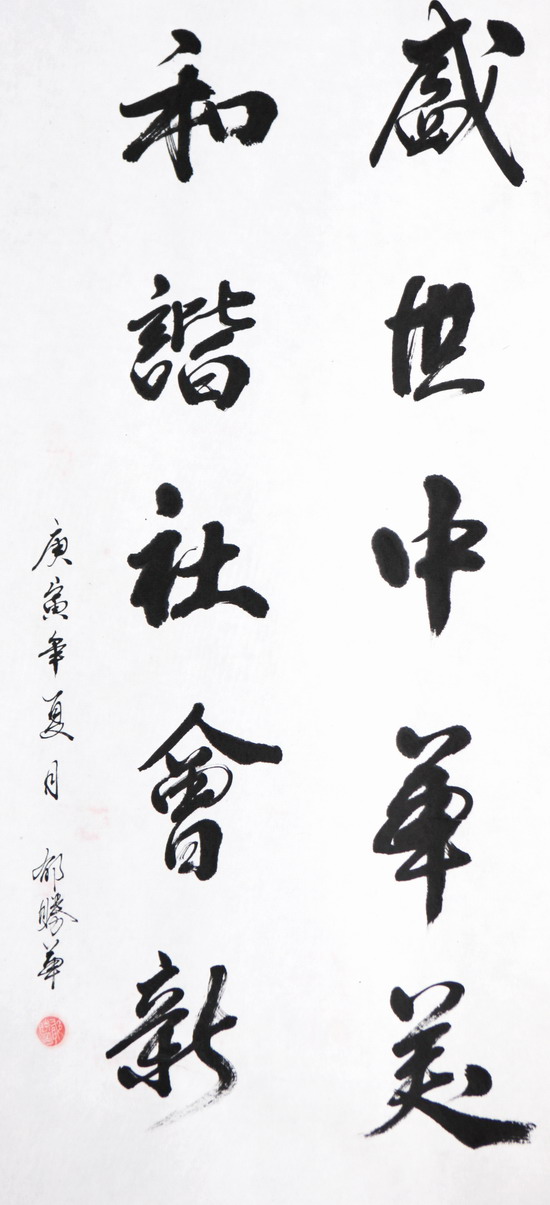 盛世中華美
和諧社會新
庚寅年夏月 郁勝華